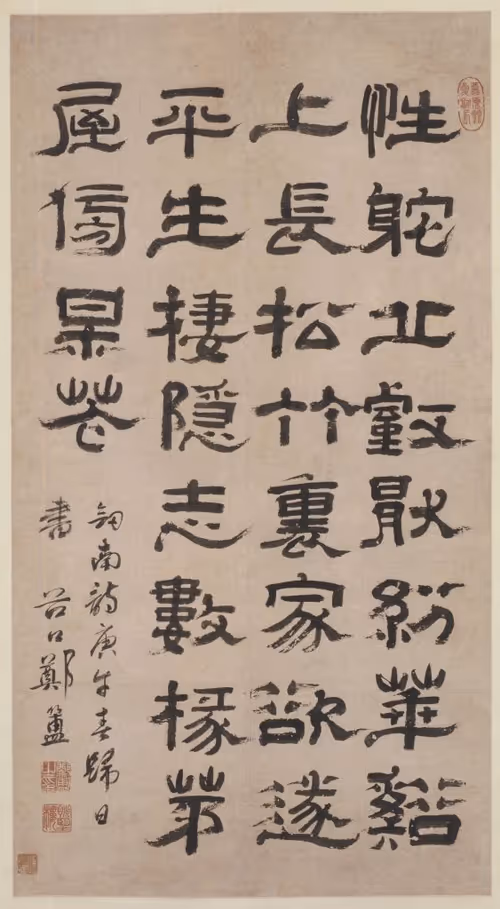 性躭丘壑猒紛華谿
上長松竹裏家欲遂
平生棲隱志數椽茅
屋傍某花
劒南詩庚午春歸日
書 谷口鄭簠